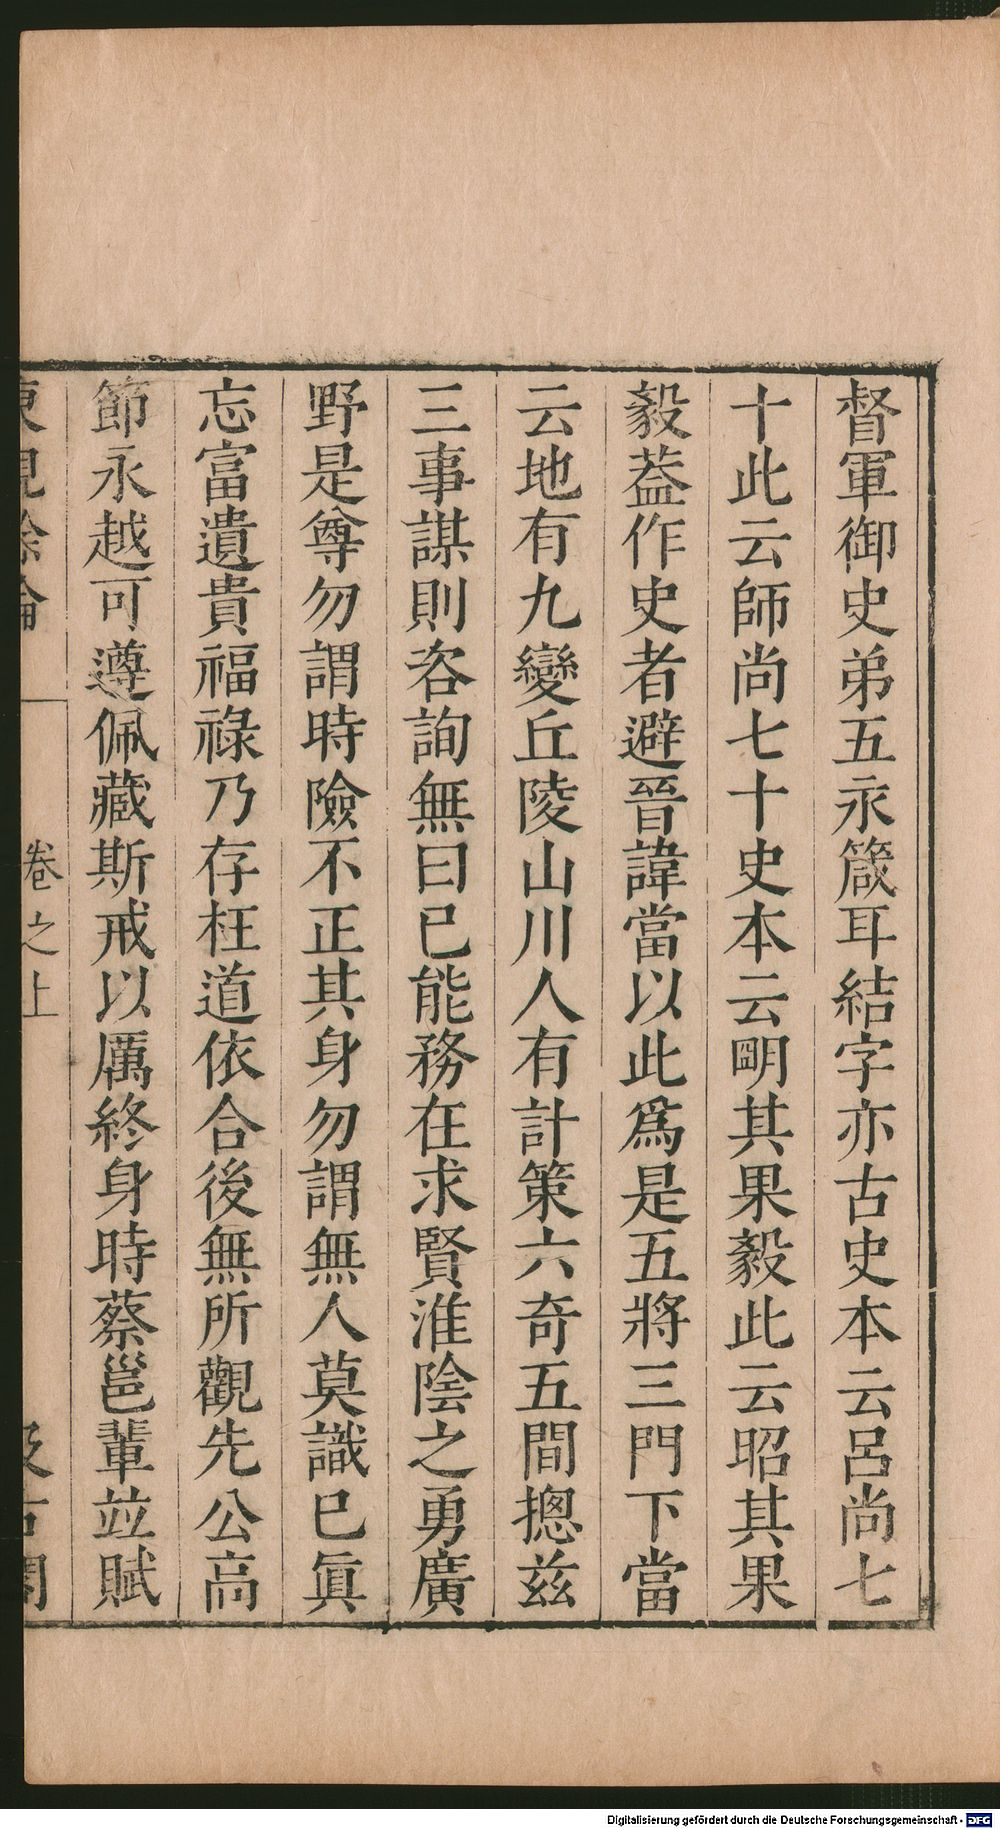 督軍御史弟五永箴耳結字亦古史本云呂尚七
十此云師尚七十史本云明其果毅此云昭其果
毅葢作史者避晉諱當以此爲是五將三門下當
云地有九變丘陵山川人有計策六奇五間摠兹
三事謀則咨詢無曰已能務在求賢淮陰之勇廣
野是尊勿謂時險不正其身勿謂無人莫識已眞
忘富遺貴福祿乃存枉道依合後無所觀先公高
節永越可遵佩藏斯戒以厲終身時蔡邕輩竝賦
東觀餘論
卷之上
汲古閣
Digitalisierung gefördert durch die Deutsche Forschungsgemeinschaft - DFG